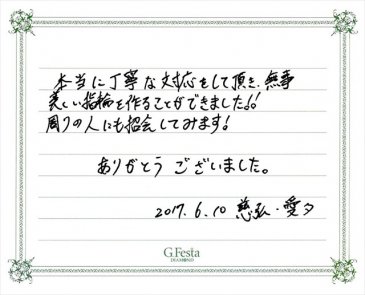 本当に丁寧な対応をして頂き、無事
美しい指輪を作ることができました!!
周りの人にも招会してみます!
ありがとうございました。
2017.6.10 慈弘・愛夕
G.Festa
DIAMOND